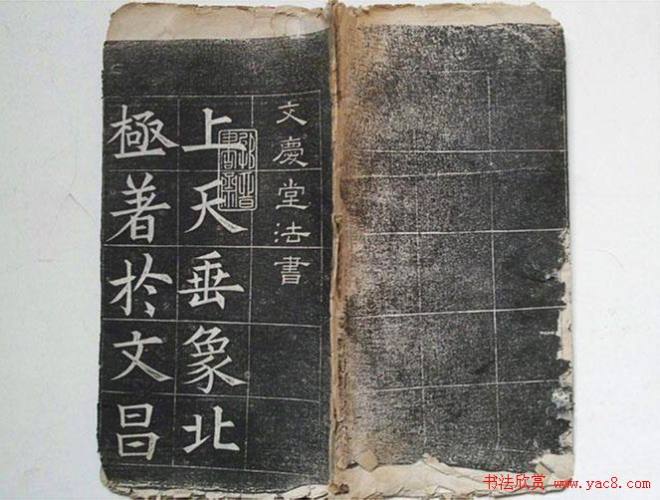 文慶堂法書
上天垂象北
極著於文昌
书法欣赏
www.yac8.com